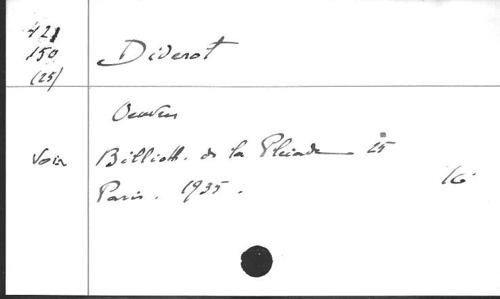 421
150
(25)
Diderot
Oeuvres
Voir
Biblioth. de la Pleiade 25
Paris. 1935.
16